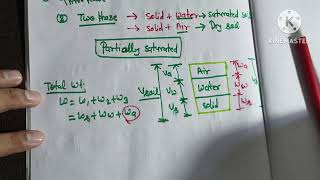 (2) Two Phase → Solid + Water → Saturated soil
→ Solid + Air → Dry soil
Partially saturated
Total wt.
W = W1 + W2 + W3
= Ws + Ww + Wa
Vsoil
Va
Vw
Vs
Air
Water
Solid
Wa
Ww
Ws
KINEMASTER